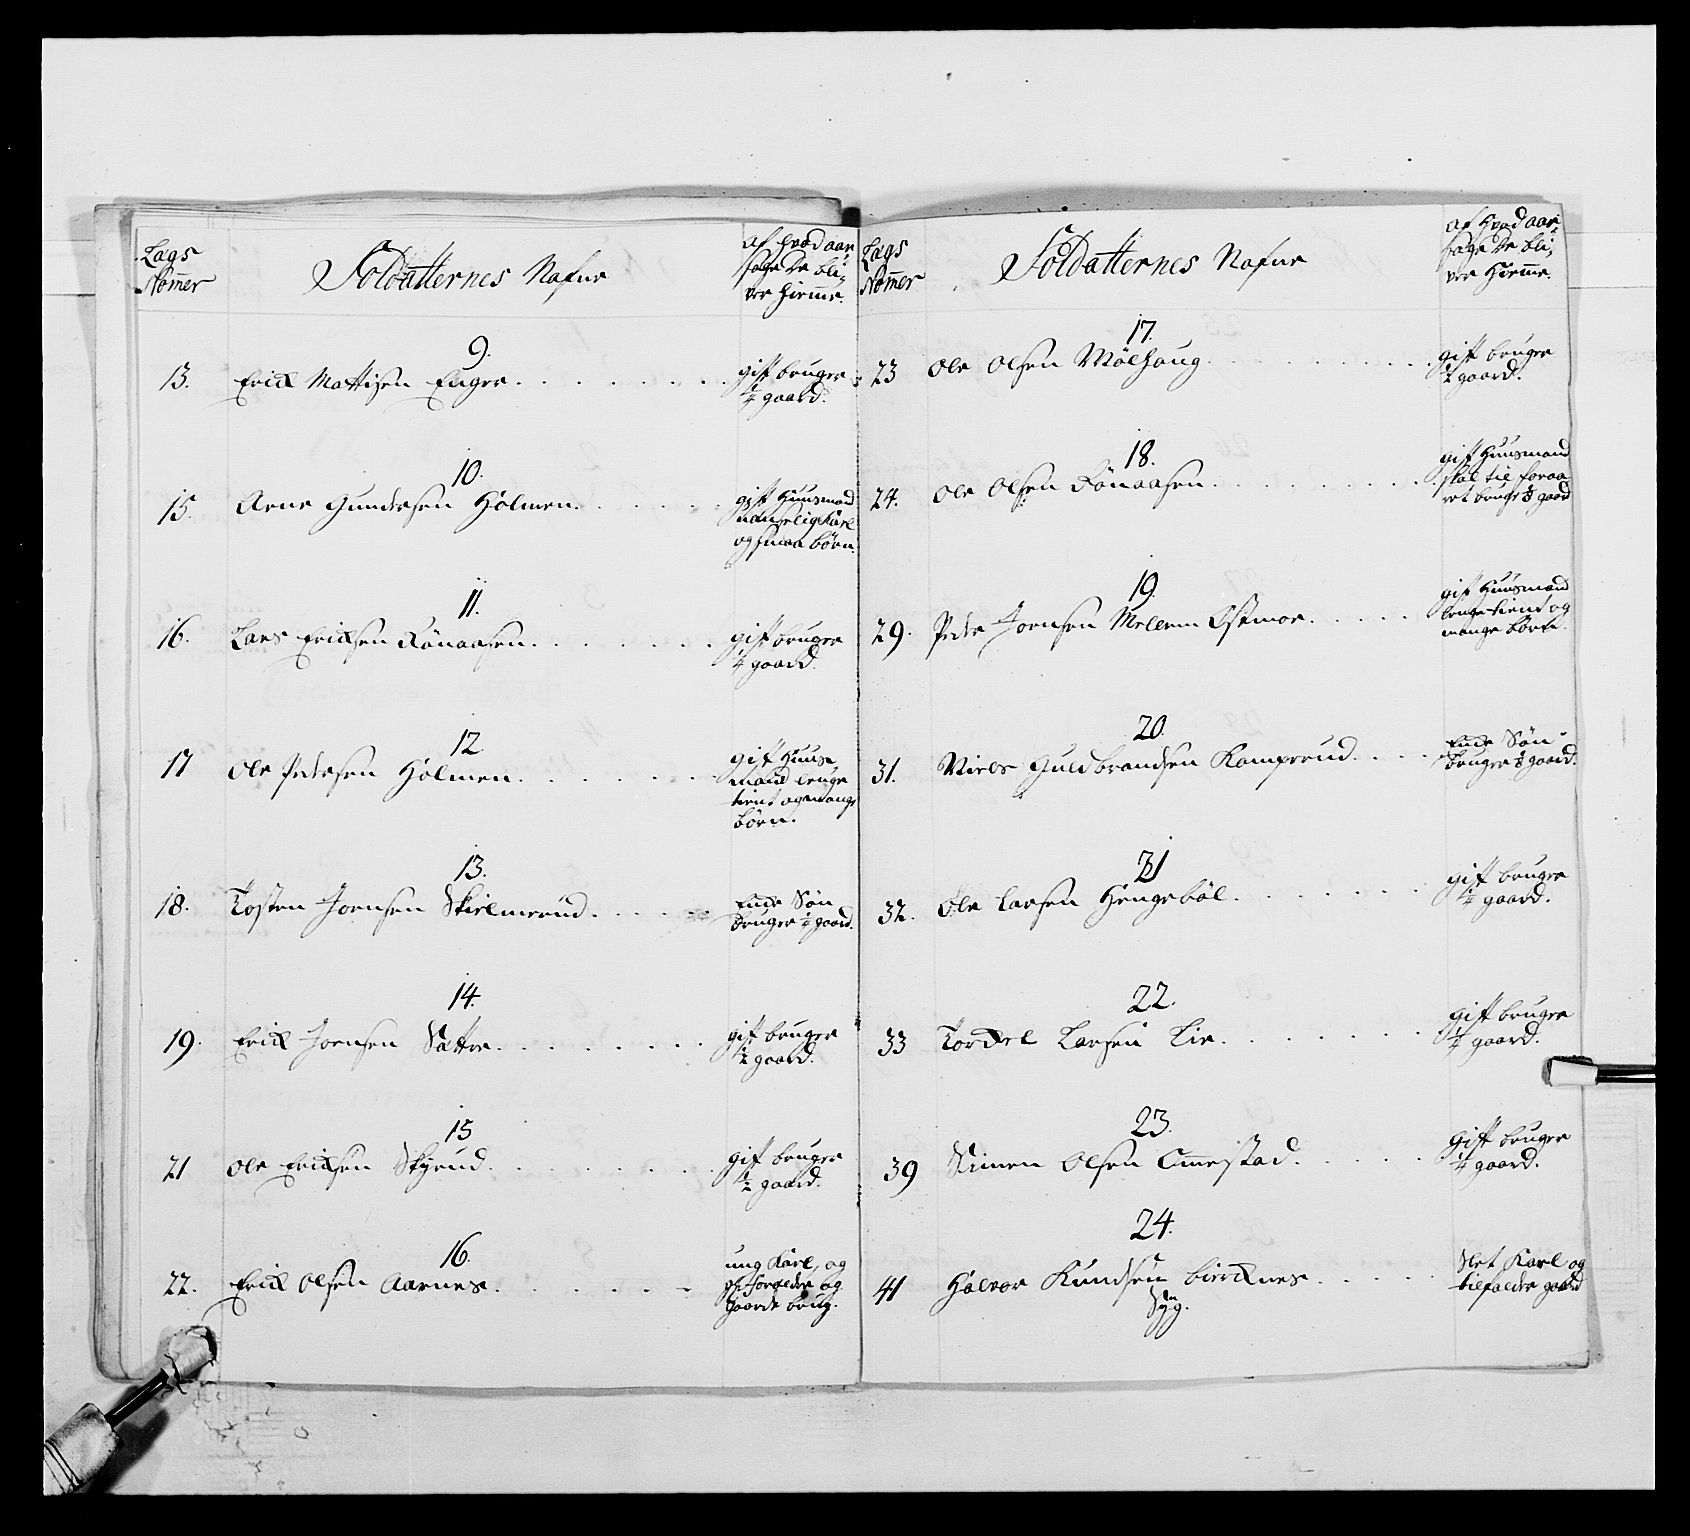 Lags Nom̄er
Soldatternes Nafne
af hvad aar
sage de bli,
ver hiem̄e.
9.
13. Erick Mattisen Enger
gift bruger
1/4 gaard.
10.
15. Arne Gundersen Holmen.
gift Huusmand
og smaa børn.
11.
16. Lars Ericksen Rønaasen.
gift bruger
1/4 gaard.
12.
17 Ole Pedersen Holmen.
gift Huus
mand lenge
tient og mange
børn.
13.
18. Tosten Joensen Skielmerud.
Enke Søn
bruger 1/2 gaard.
14.
19. Erick Joensen Sættre.
gift bruger
1/2 gaard.
15
21 Ole Ericksen Skyrud.
gift bruger
1/2 gaard.
16.
22. Erick Olsen Aarnes.
ung Karl, og
forældre og
gaards brug.
Lags Nom̄er
Soldatternes Nafne
af hvad aar,
sage de bli,
ver hiem̄e.
17.
23 Ole Olsen Mølhaug.
gift bruger
1/2 gaard.
18.
24. Ole Olsen Rønaasen.
gift Huusmand
skal til foraa
ret bruge gaard
19.
29. Peder Joensen Mellem Ostmoe.
gift Huusmand
lenge tient og
mange børn.
20.
31. Niels Guldbrandsen Kamprud.
Enke Søn
bruger gaard.
21
32. Ole Larsen Hengebøl.
gift bruger
1/4 gaard.
22.
33 Torckel Larsen Lie.
gift bruger
1/4 gaard.
23.
39 Simen Olsen Om̄estad.
gift bruger
1/4 gaard.
24.
41 Halvor Knudsen Bircknes.
Syg.
Slet Karl og
tilfalder gaard